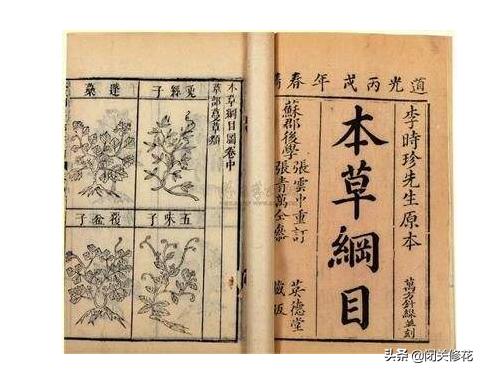 道光丙戌年春
李時珍先生原本
萬方針線並刻
本草綱目
蘇郡後學
張雲中重訂
張青萬仝參
英德堂
藏版
本草綱目圖卷中
草部蔓草類
兔絲子
五味子
蓬蘽
覆盆子
头条 @闭关修花